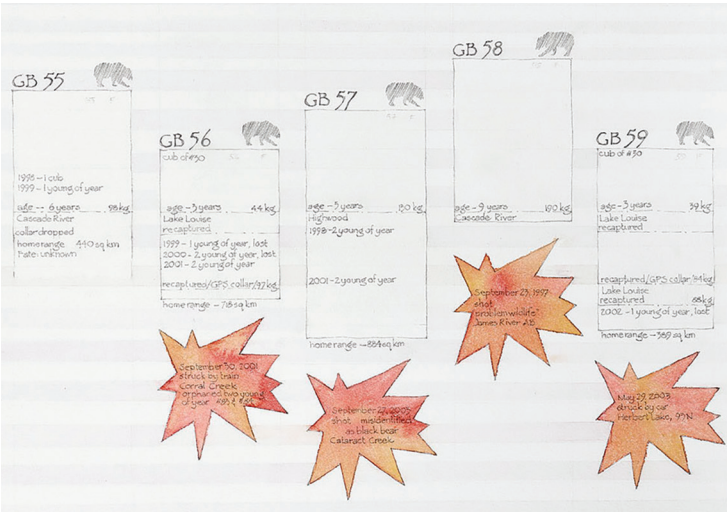 GB 55
1998 - 1 cub
1999 - 1 young of year
age -- 6 years 98 kg
Cascade River
collar dropped
homerange 440 sq km
Fate: unknown
GB 56
cub of #30
age - 3 years 44 kg
Lake Louise
recaptured
1999 - 1 young of year, lost
2000 - 2 young of year, lost
2001 - 2 young of year
recaptured/GPS collar/97 kg
homerange - sq km
September 30, 2001
struck by train
Corral Creek
orphaned two young
of year
GB 57
age - 5 years 80 kg
Highwood
1998 - 2 young of year
2001 - 2 young of year
homerange - 884 sq km
September 2003
shot misidentified
as black bear
Cataract Creek
GB 58
age - 9 years 190 kg
Cascade River
September 23, 1997
shot
"problem wildlife"
James River AB
GB 59
cub of #30
age - 3 years 39 kg
Lake Louise
recaptured
recaptured/GPS collar 84 kg
Lake Louise
recaptured 88 kg
2002 - 1 young of year, lost
homerange - 389 sq km
May 29, 2003
struck by car
Herbert Lake, 93N